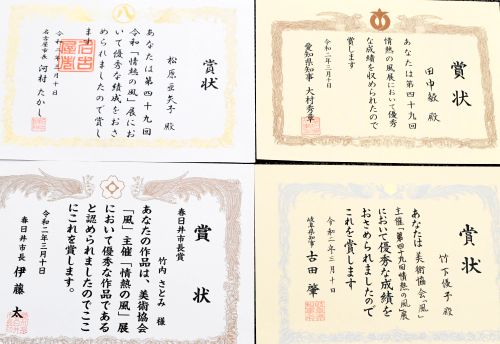 賞状
松原亜矢子 殿
あなたは第四十九回
令和「情熱の風」展にお
いて優秀な成績をおさ
められましたので賞し
ます
令和二年三月十日
名古屋市長 河村たかし
賞状
田中敏 殿
あなたは第四十九回
情熱の風展において優秀
な成績を収められたので
賞します
令和二年三月十日
愛知県知事 大村秀章
賞状
春日井市長賞
竹内さとみ 様
あなたの作品は、美術協会
「風」主催「情熱の風」展
において優秀な作品である
と認められましたのでここ
にこれを賞します。
令和二年三月十日
春日井市長 伊藤 太
賞状
竹下優子 殿
あなたは美術協会「風」
主催「第四十九回情熱の風」展
において優秀な成績を
おさめられましたので
これを賞します
令和二年三月十日
岐阜県知事 古田 肇